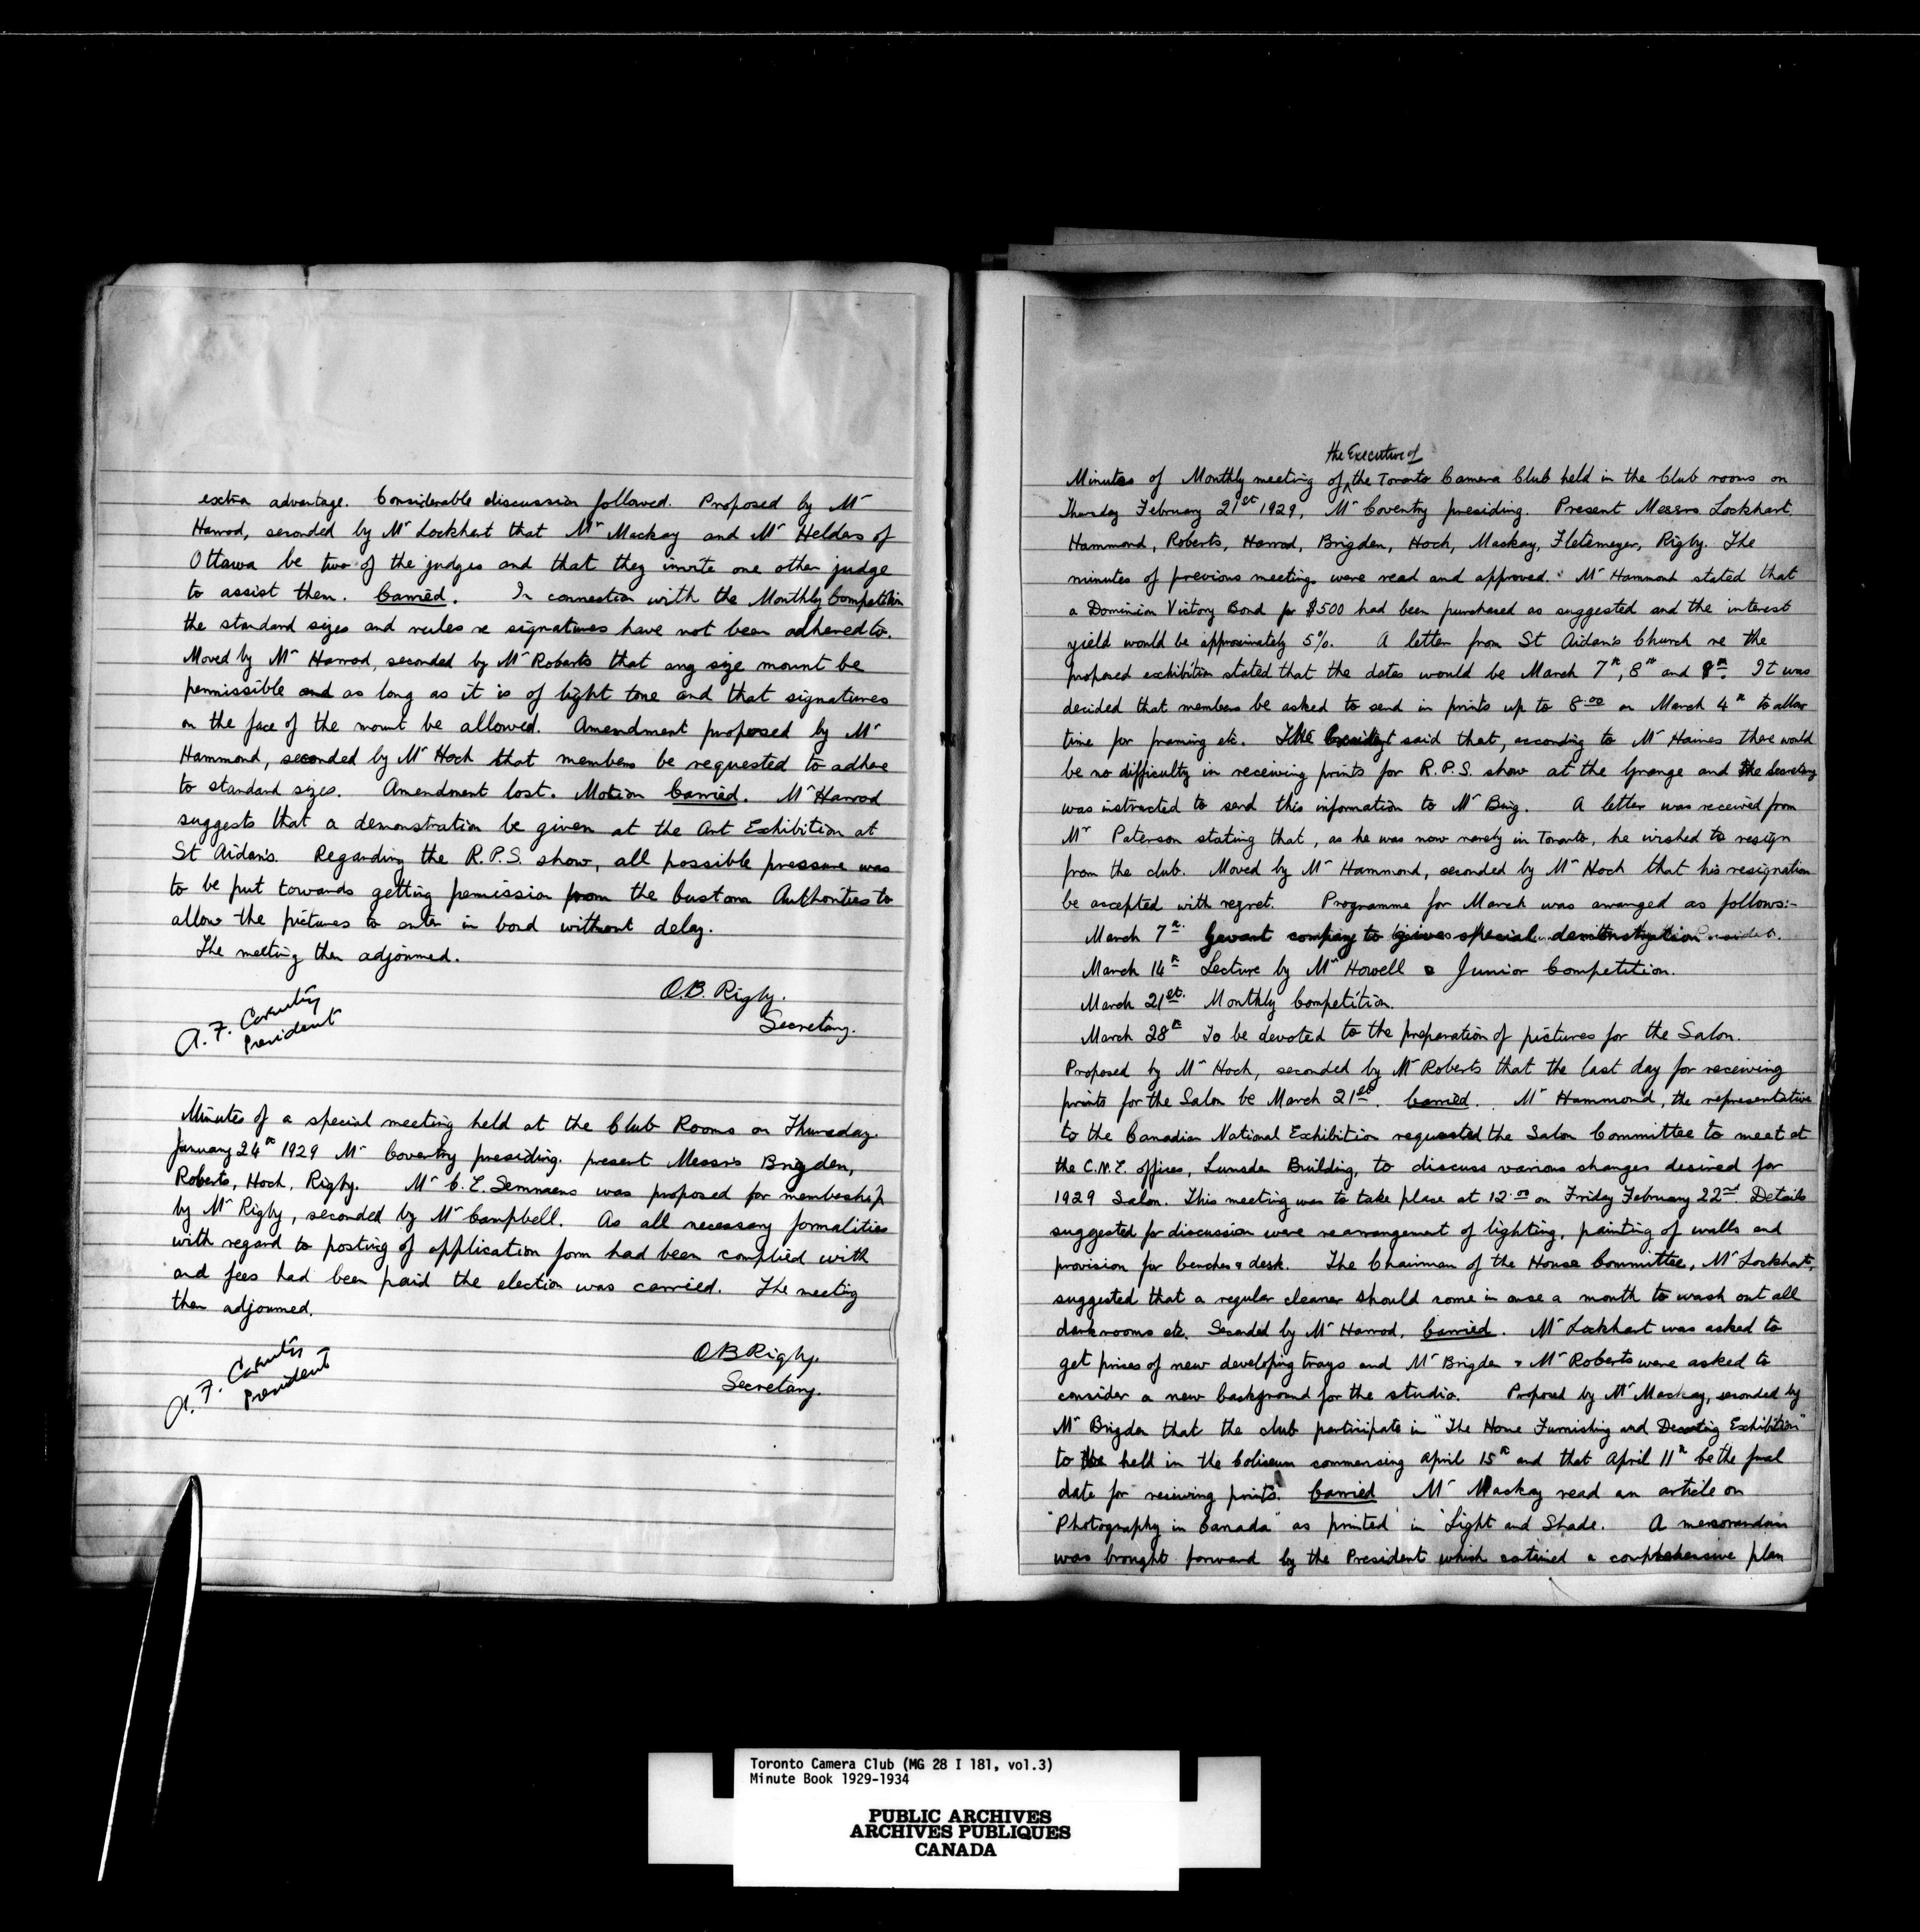 extra advantage. Considerable discussion followed. Proposed by Mr
Harrod, seconded by Mr Lockhart that Mr Mackay and Mr Helders of
Ottawa be two of the judges and that they invite one other judge
to assist them. Carried. In connection with the Monthly Competition
the standard sizes and rules re signatures have not been adhered to.
Moved by Mr Harrod, seconded by Mr Roberts that any size mount be
permissible and as long as it is of light tone and that signatures
on the face of the mount be allowed. Amendment proposed by Mr
Hammond, seconded by Mr Hoch that members be requested to adhere
to standard sizes. Amendment lost. Motion Carried. Mr Harrod
suggests that a demonstration be given at the Art Exhibition at
St Aidan's. Regarding the R.P.S. show, all possible pressure was
to be put towards getting permission from the Customs Authorities to
allow the pictures to enter in bond without delay.
The meeting then adjourned.
O.B. Rigby.
Secretary.
A. F. Coventry
President
Minutes of a special meeting held at the Club Rooms on Thursday.
January 24th 1929 Mr Coventry presiding. present Messrs Brigden,
Roberts, Hoch, Rigby. Mr C. E. Semmens was proposed for membership
by Mr Rigby, seconded by Mr Campbell. As all necessary formalities
with regard to posting of application form had been complied with
and fees had been paid the election was carried. The meeting
then adjourned.
O B Rigby.
Secretary.
A. F. Coventry
President
the Executive of
Minutes of Monthly meeting of the Toronto Camera Club held in the Club rooms on
Thursday February 21st 1929, Mr Coventry presiding. Present Messrs Lockhart,
Hammond, Roberts, Harrod, Brigden, Hoch, Mackay, Fletemeyer, Rigby. The
minutes of previous meetings were read and approved. Mr Hammond stated that
a Dominion Victory Bond for $500 had been purchased as suggested and the interest
yield would be approximately 5%. A letter from St Aidan's Church re the
proposed exhibition stated that the dates would be March 7th, 8th and 9th. It was
decided that members be asked to send in prints up to 8.00 on March 4th to allow
time for framing etc. The President said that, according to Mr Haines there would
be no difficulty in receiving prints for R.P.S. show at the Grange and the Secretary
was instructed to send this information to Mr Bing. A letter was received from
Mr Paterson stating that, as he was now rarely in Toronto, he wished to resign
from the club. Moved by Mr Hammond, seconded by Mr Hoch that his resignation
be accepted with regret. Programme for March was arranged as follows:-
March 7th. Gevaert company to give special demonstration.
March 14th Lecture by Mr Howell & Junior Competition.
March 21st. Monthly Competition.
March 28th To be devoted to the preparation of pictures for the Salon.
Proposed by Mr Hoch, seconded by Mr Roberts that the last day for receiving
prints for the Salon be March 21st. Carried. Mr Hammond, the representative
to the Canadian National Exhibition requested the Salon Committee to meet at
the C.N.E. offices, Lumsden Building, to discuss various changes desired for
1929 Salon. This meeting was to take place at 12.00 on Friday February 22nd. Details
suggested for discussion were rearrangement of lighting, painting of walls and
provision for benches & desk. The Chairman of the House Committee, Mr Lockhart,
suggested that a regular cleaner should come in once a month to wash out all
darkrooms etc. Seconded by Mr Harrod, Carried. Mr Lockhart was asked to
get prices of new developing trays and Mr Brigden & Mr Roberts were asked to
consider a new background for the studio. Proposed by Mr Mackay, seconded by
Mr Brigden that the club participate in "The Home Furnishing and Decorating Exhibition"
to be held in the Coliseum commencing April 15th and that April 11th be the final
date for receiving prints. Carried Mr Mackay read an article on
"Photography in Canada" as printed in "Light and Shade. A memorandum
was brought forward by the President which contained a comprehensive plan
Toronto Camera Club (MG 28 I 181, vol.3)
Minute Book 1929-1934
PUBLIC ARCHIVES
ARCHIVES PUBLIQUES
CANADA